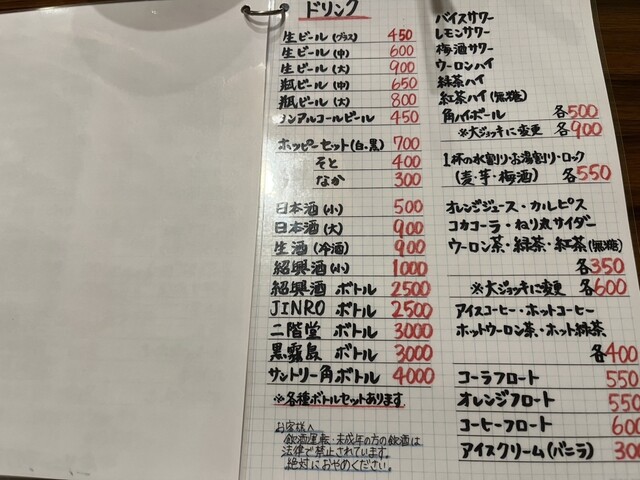 ドリンク
生ビール(グラス) 450
生ビール(中) 600
生ビール(大) 900
瓶ビール(中) 650
瓶ビール(大) 800
ノンアルコールビール 450
ホッピーセット(白・黒) 700
そと 400
なか 300
日本酒(小) 500
日本酒(大) 900
生酒(冷酒) 900
紹興酒(小) 1000
紹興酒 ボトル 2500
JINRO ボトル 2500
二階堂 ボトル 3000
黒霧島 ボトル 3000
サントリー角ボトル 4000
※各種ボトルセットあります
お客様へ
飲酒運転・未成年の方の飲酒は
法律で禁止されています。
絶対におやめください。
バイスサワー
レモンサワー
梅酒サワー
ウーロンハイ
緑茶ハイ
紅茶ハイ(無糖)
角ハイボール 各500
※大ジョッキに変更 各900
1杯の水割り・お湯割り・ロック
(麦・芋・梅酒) 各550
オレンジジュース・カルピス
コカコーラ・ねり丸サイダー
ウーロン茶・緑茶・紅茶(無糖)
各350
※大ジョッキに変更 各600
アイスコーヒー・ホットコーヒー
ホットウーロン茶・ホット緑茶
各400
コーラフロート 550
オレンジフロート 550
コーヒーフロート 600
アイスクリーム(バニラ) 300